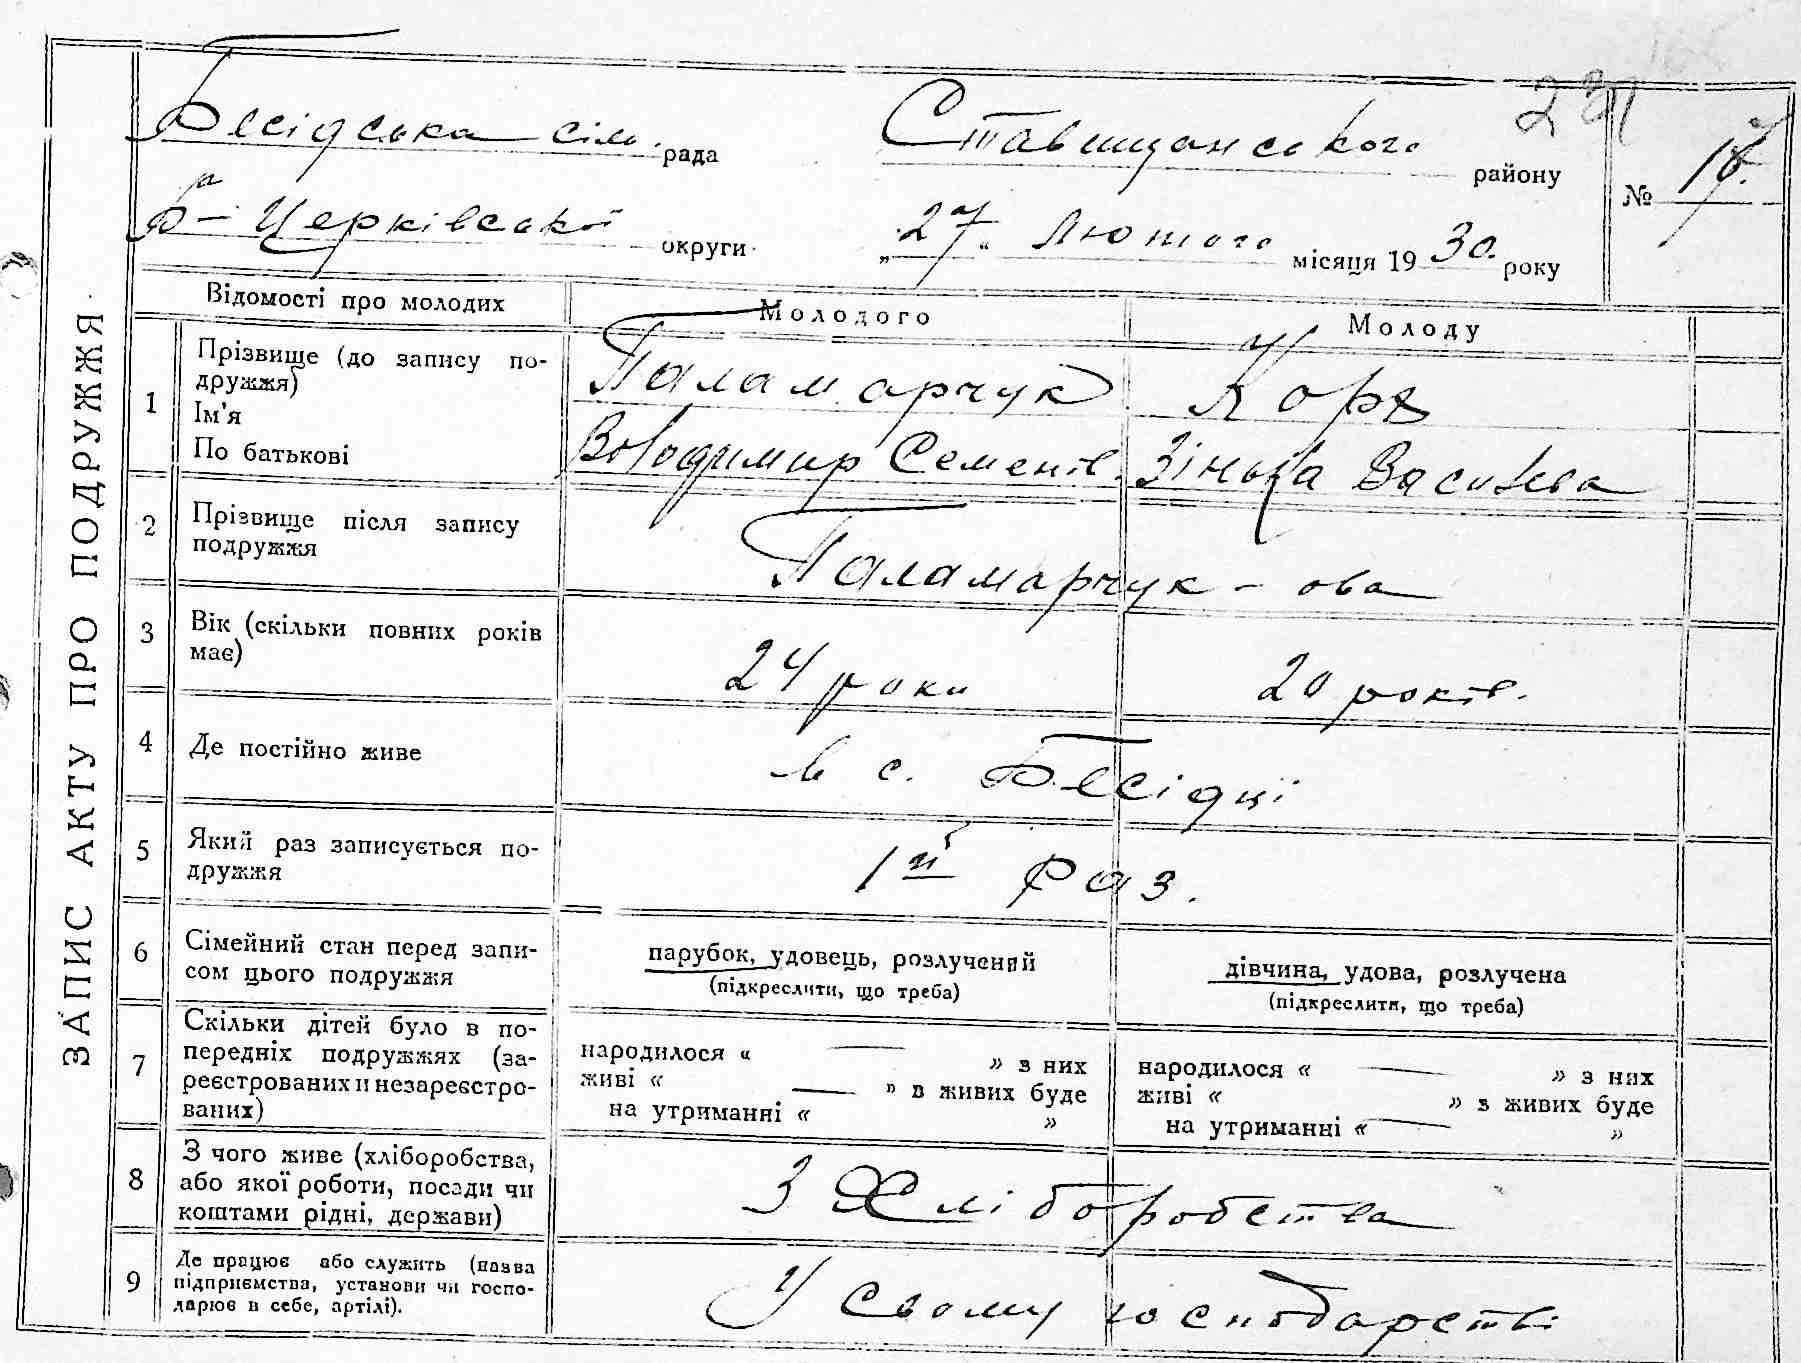 Бесідська сіль. рада Ставищанського району
№ 17.
Б-а Церківської округи „27" Лютого місяця 1930. року
ЗАПИС АКТУ ПРО ПОДРУЖЖЯ
Відомості про молодих Молодого Молоду
1 Прізвище (до запису по-
дружжя)
Ім'я
По батькові
Паламарчук
Володимир Семенів.
Корж
Зінька Василева
2 Прізвище після запису
подружжя
Паламарчук - ова
3 Вік (скільки повних років
має)
24 роки 20 років.
4 Де постійно живе в с. Бесідці
5 Який раз записується по-
дружжя
1й раз.
6 Сімейний стан перед запи-
сом цього подружжя
парубок, удовець, розлучений
(підкреслити, що треба)
дівчина, удова, розлучена
(підкреслити, що треба)
7 Скільки дітей було в по-
передніх подружжях (за-
реєстрованих и незареєстро-
ваних)
народилося « — » з них
живі « — » в живих буде
на утриманні « »
народилося « — » з них
живі « » з живих буде
на утриманні « — »
8 З чого живе (хліборобства,
або якої роботи, посади чи
коштами рідні, держави)
З Хліборобства
9 Де працює або служить (назва
підприємства, установи чи госпо-
дарює в себе, артілі).
У свому господарстві